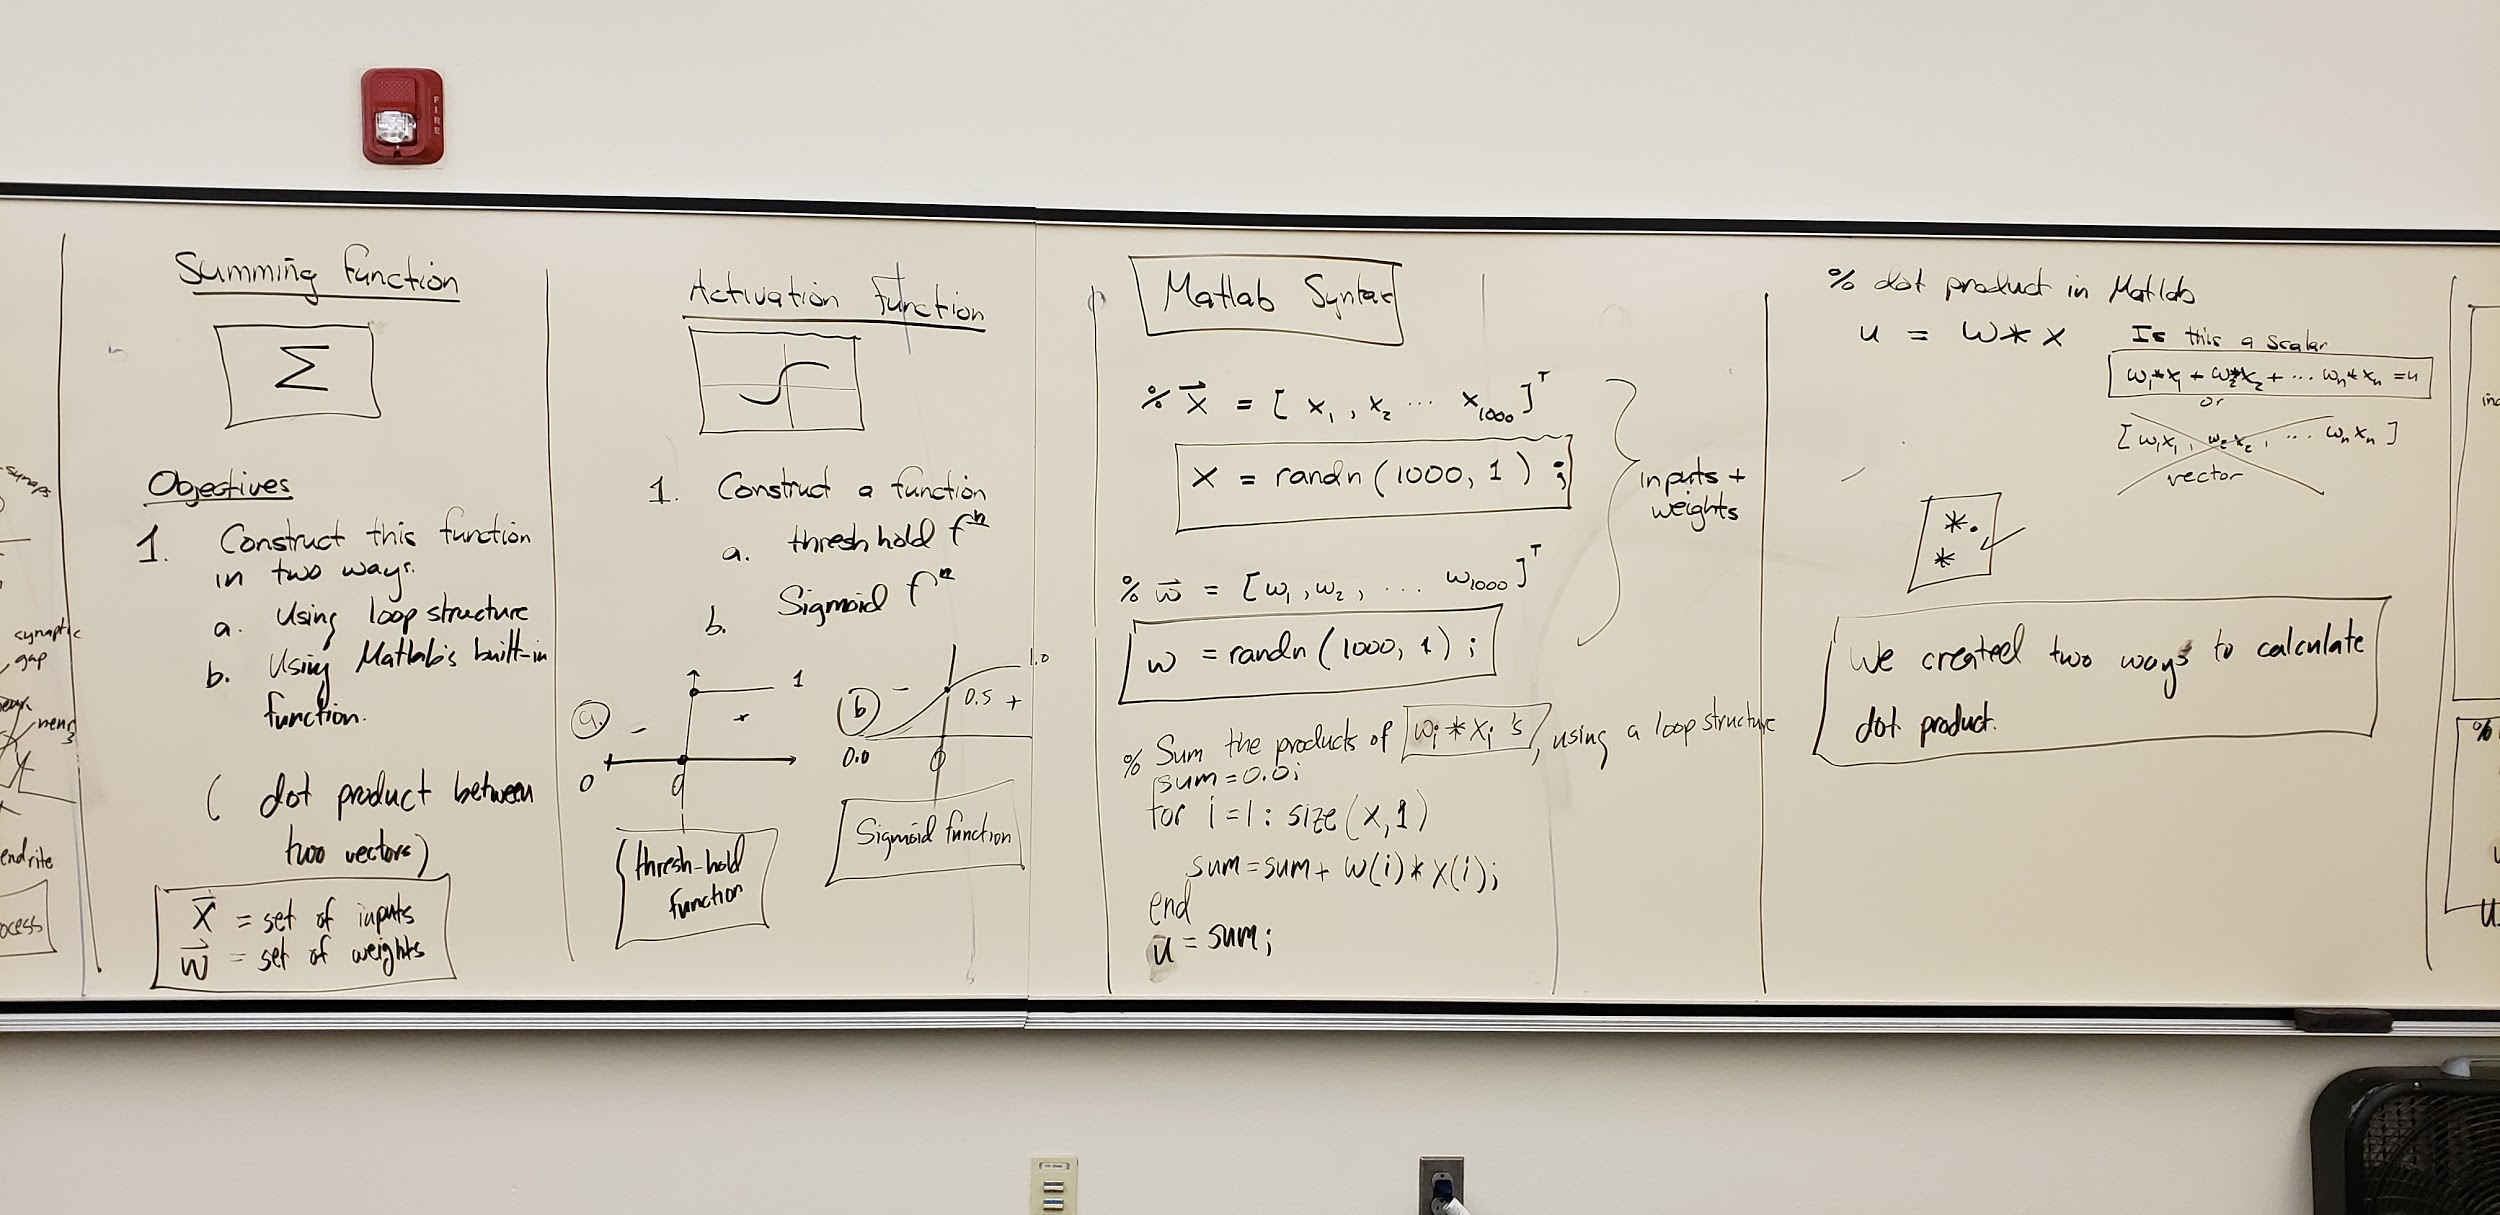 FIRE
synaps
synaptic
gap
endrite
ocess
Summing function
Σ
Objectives
1. Construct this function
in two ways.
a. Using loop structure
b. Using Matlab's built-in
function.
( dot product between
two vectors)
X⃗ = set of inputs
w⃗ = set of weights
Activation Function
1. Construct a function
a. threshhold fⁿ
b. Sigmoid fⁿ
a.
−
1
+
0
0
(thresh-hold
function
b
−
1.0
0.5 +
0.0
0
Sigmoid function
Matlab Syntax
% X⃗ = [ x₁, x₂ ... x₁₀₀₀ ]ᵀ
X = randn(1000, 1) ;
% w⃗ = [w₁, w₂, ... w₁₀₀₀ ]ᵀ
w = randn(1000, 1) ;
inputs +
weights
% Sum the products of wᵢ * xᵢ 's, using a loop structure
sum=0.0;
for i=1: size(x,1)
sum=sum+ w(i)* x(i);
end
u = sum;
% dot product in Matlab
u = w * x
Is this a scalar
w₁*x₁ + w₂*x₂ + ... wₙ*xₙ = u
or
[ w₁x₁, w₂x₂, ... wₙxₙ ]
vector
*.
*
We created two ways to calculate
dot product.
%
u